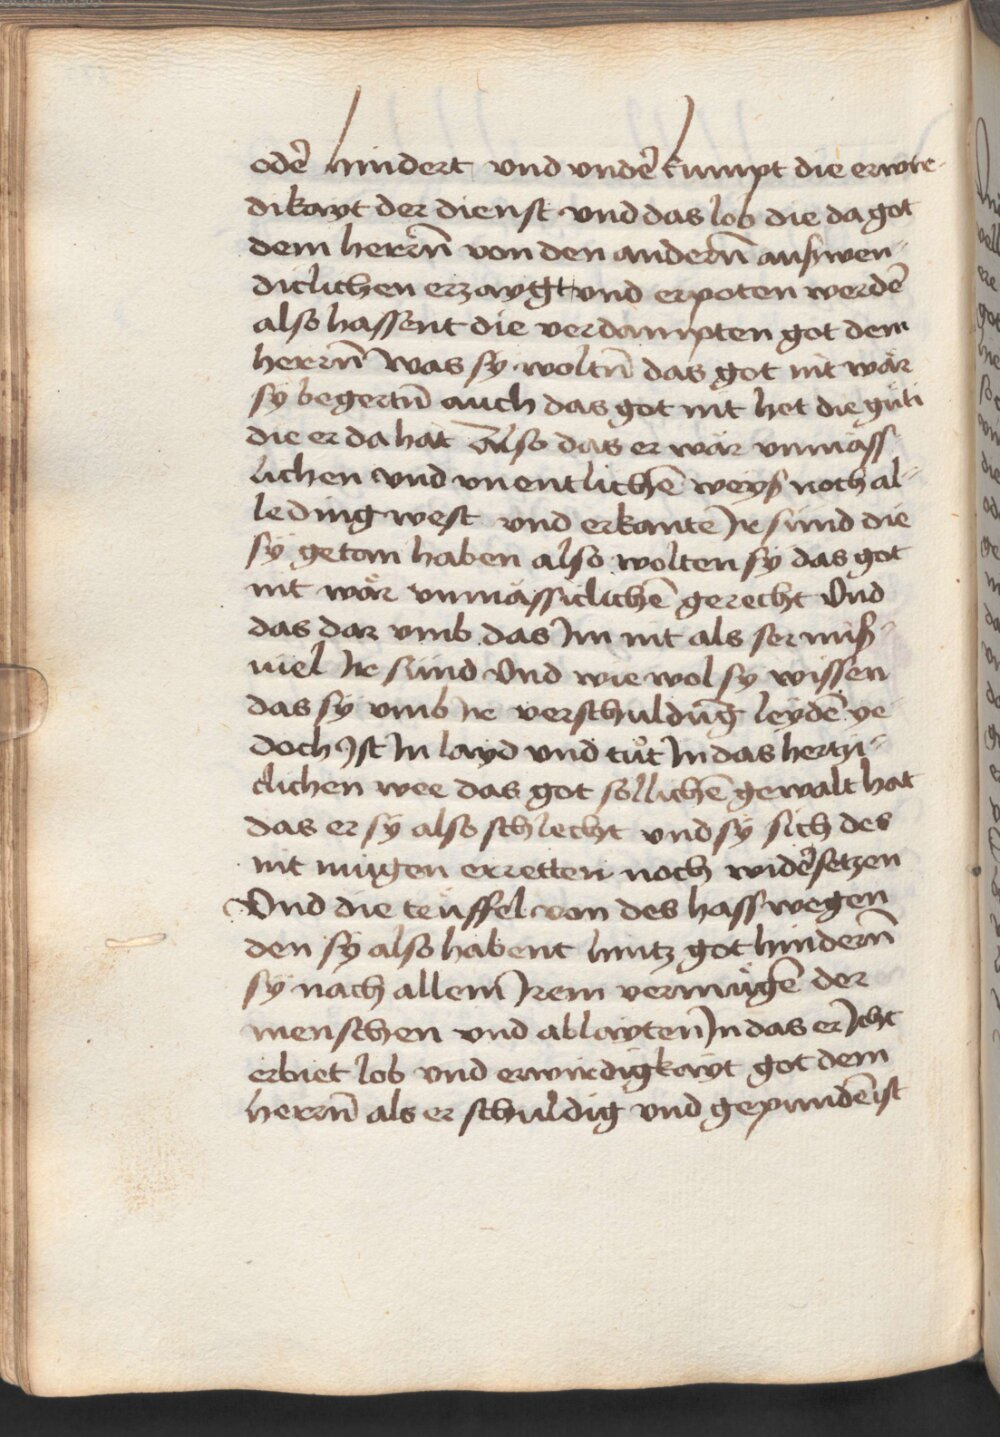 odē hindert und undē kumpt die erwir-
dikayt der dienst und das lob die da got
dem herrn̄ von den andern̄ auswen-
diclichen erzaygt und erpoten werdē
also hassent die verdampten got dem
herrn̄ was sy woltn̄ das got nit wår
sÿ begertn̄ auch das got nit het die guͤti
die er da hat Also das er wår unmåss
lichen und unentlichē weyß noch al-
le ding west und erkante Ir sund die
sÿ getan haben also wolten sy das got
nit wår unmåssiclichē gerecht Und
das dar umb das Im nit als ser miß-
viel Ir sund Und wie wol sy wissen
das sÿ umb Ir verschuldūg leydē ye
doch Ist In layd und tuͦt In das hertzi-
clichen wee das got sollichē gewalt hat
das er sÿ also schlecht und sÿ sich des
nit mugen erretten noch widēsetzen
Und die teuffel von des hass wegen
den sÿ also habent hintz got hindern̄
sÿ nach allem Irem vermuͤgē der
menschen und ablayten In das er Icht
erbiet lob und erwirdigkayt got dem
herrn̄ als er schuldig und gepundē ist